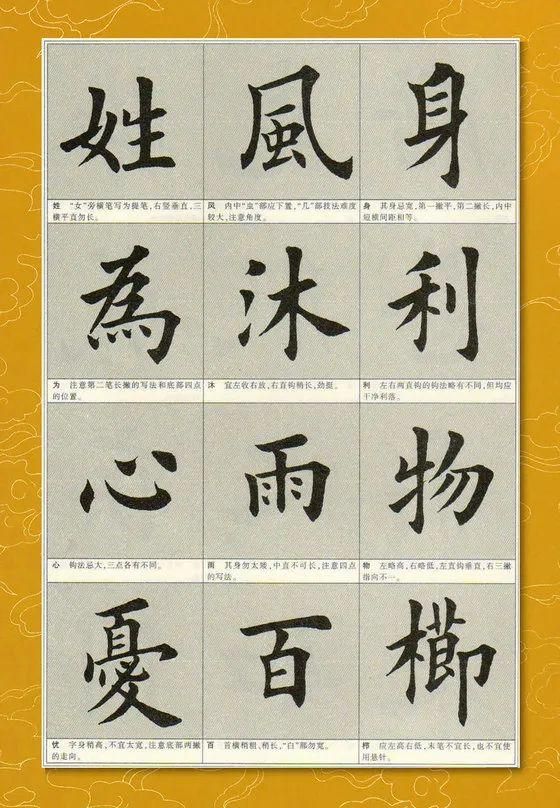 身
身 其身忌宽,第一撇平,第二撇长,内中
短横间距相等。
利
利 左右两直钩的钩法略有不同,但均应
干净利落。
物
物 左略高,右略低,左直钩垂直,右三撇
指向不一。
櫛
栉 应左高右低,末笔不宜长,也不宜使
用悬针。
風
风 内中“虫”部应下置,“几”部技法难度
较大,注意角度。
沐
沐 宜左收右放,右直钩稍长,劲挺。
雨
雨 其身勿太矮,中直不可长,注意四点
的写法。
百
百 首横稍粗,稍长,“白”部勿宽。
姓
姓 “女”旁横笔写为提笔,右竖垂直,三
横平直勿长。
為
为 注意第二笔长撇的写法和底部四点
的位置。
心
心 钩法忌大,三点各有不同。
憂
忧 字身稍高,不宜太宽,注意底部两撇
的走向。